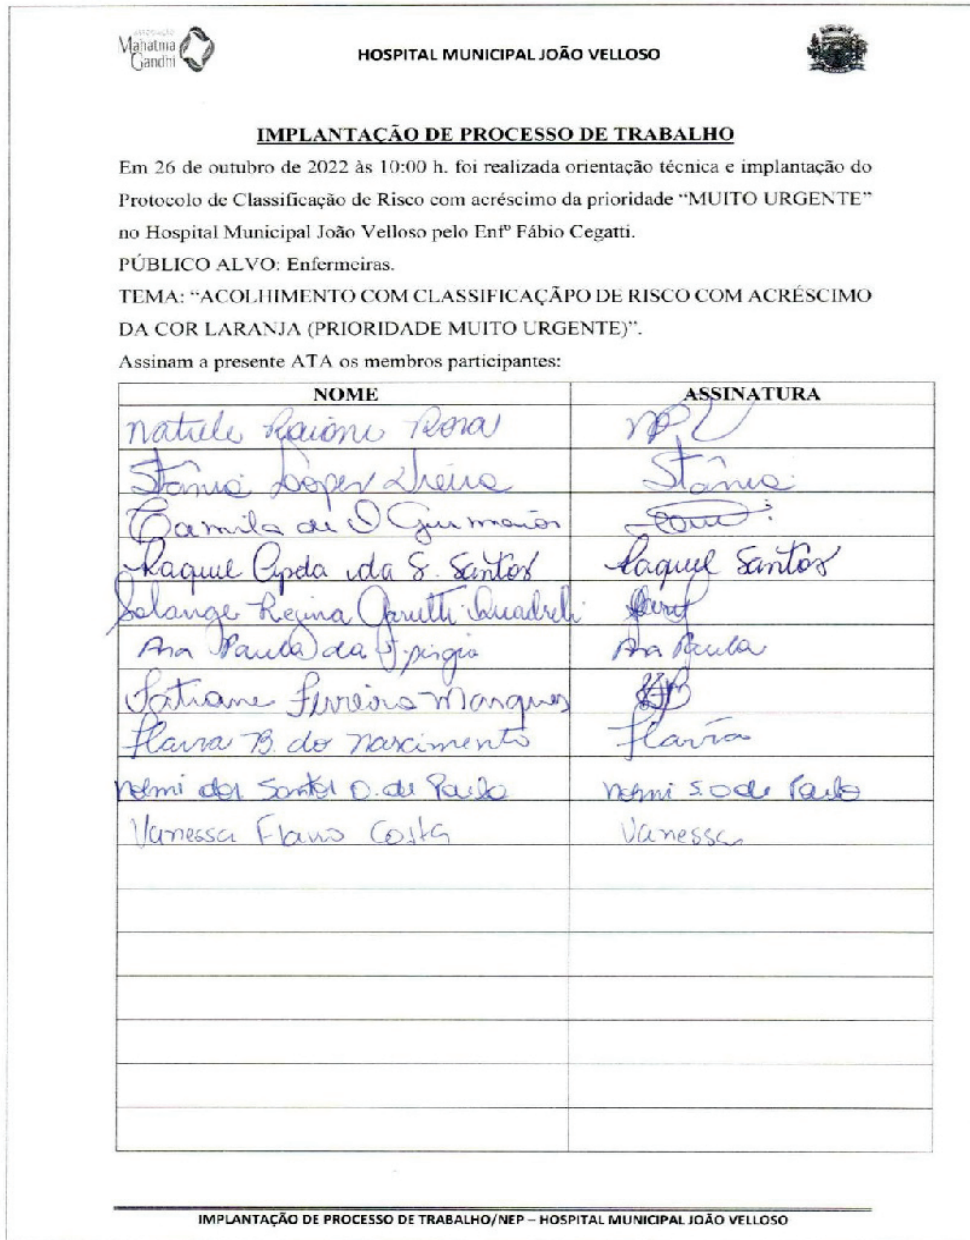 ASSOCIAÇÃO
Mahatma
Gandhi
HOSPITAL MUNICIPAL JOÃO VELLOSO
IMPLANTAÇÃO DE PROCESSO DE TRABALHO
Em 26 de outubro de 2022 às 10:00 h. foi realizada orientação técnica e implantação do
Protocolo de Classificação de Risco com acréscimo da prioridade “MUITO URGENTE”
no Hospital Municipal João Velloso pelo Enfº Fábio Cegatti.
PÚBLICO ALVO: Enfermeiras.
TEMA: “ACOLHIMENTO COM CLASSIFICAÇÃPO DE RISCO COM ACRÉSCIMO
DA COR LARANJA (PRIORIDADE MUITO URGENTE)”.
Assinam a presente ATA os membros participantes:
NOME ASSINATURA
Raione Rosa
Stânia Lopes Vieira Stânia
Camila de O Guimarães
Raquel Apda da S. Santos Raquel Santos
Solange Regina Quadreli
Ana Paula da Ana Paula
Tatiane Ferreira Marques
Flavia B. do Nascimento Flavia
Noemi dos Santos O. de Paula Noemi S. O de Paula
Vanessa Costa Vanessa
IMPLANTAÇÃO DE PROCESSO DE TRABALHO/NEP – HOSPITAL MUNICIPAL JOÃO VELLOSO